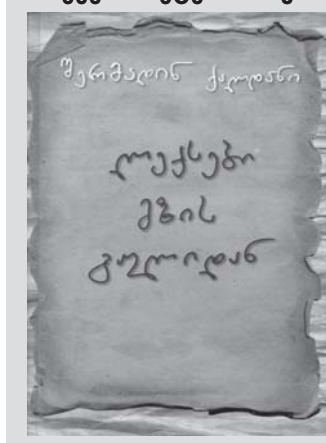 შერმადინ ქალდანი
ლექსები
მზის
გულიდან